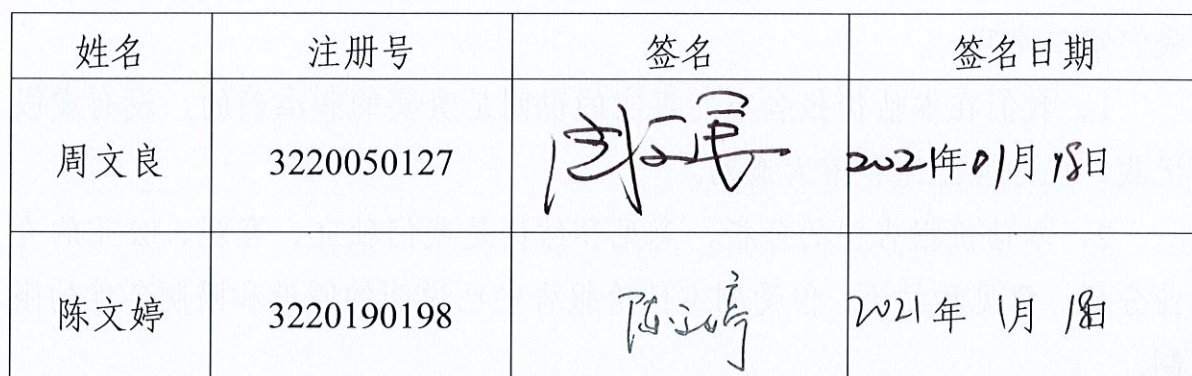 姓名 注册号 签名 签名日期
周文良 3220050127 周文良 2021年01月18日
陈文婷 3220190198 陈文婷 2021年1月18日